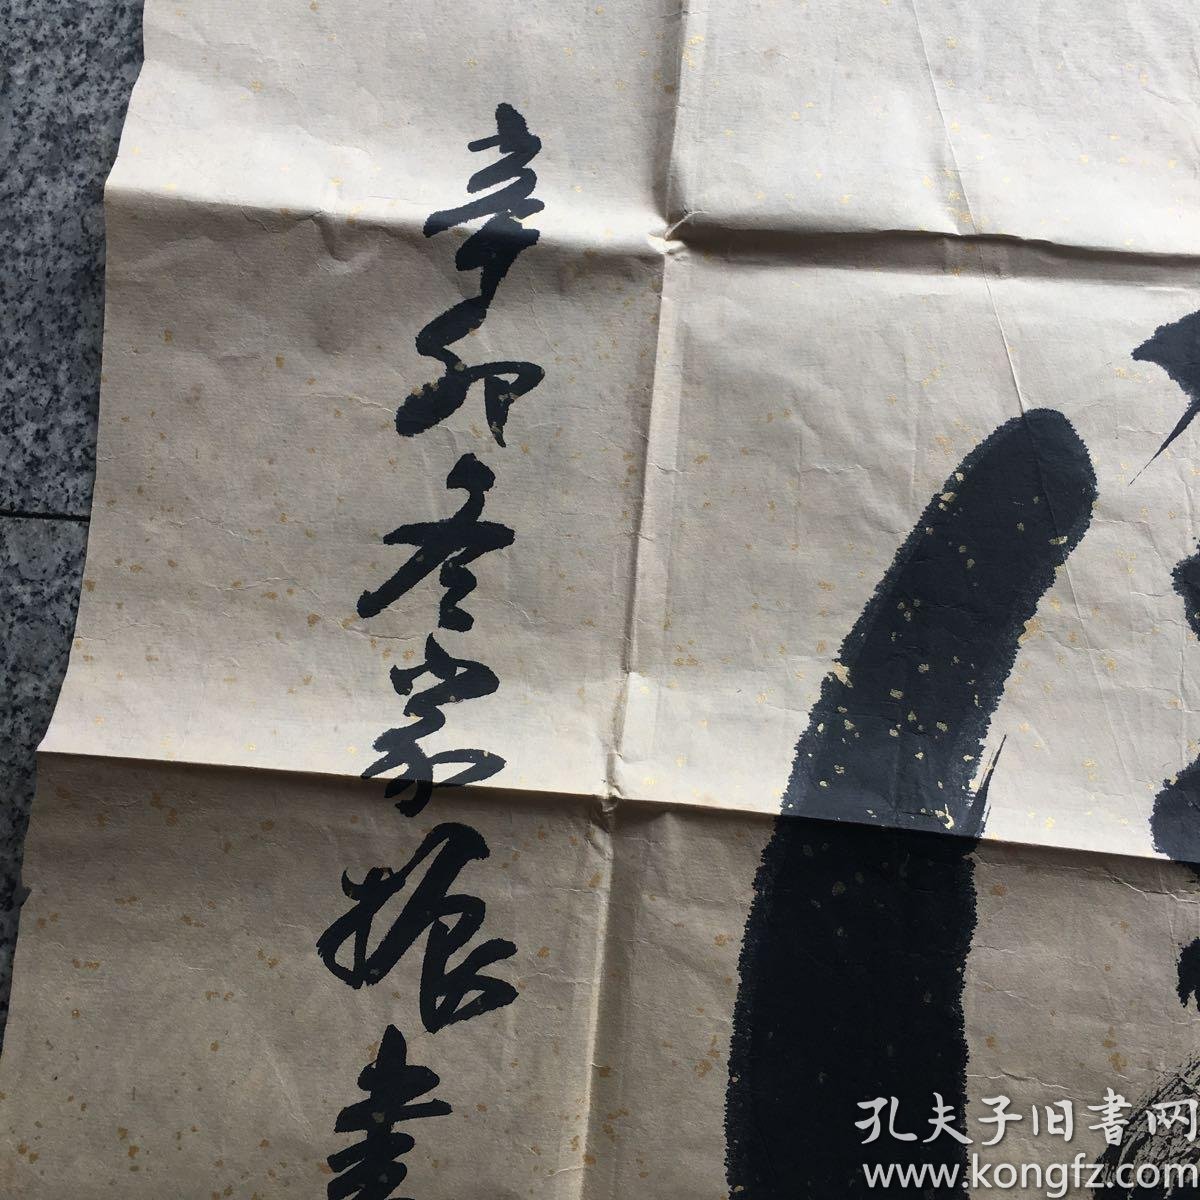 辛卯冬家振書
孔夫子旧書网
www.kongfz.com